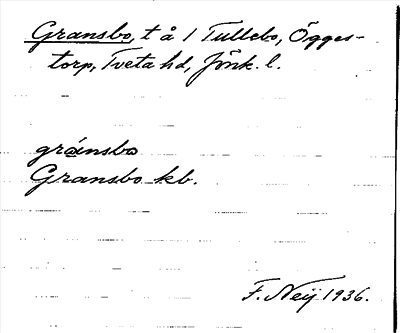 Gransbo, t å 1 Tullebo, Ögges-
torp, Tveta hd, Jönk. l.
gránsbo
Gransbo kb.
F. Neij 1936.